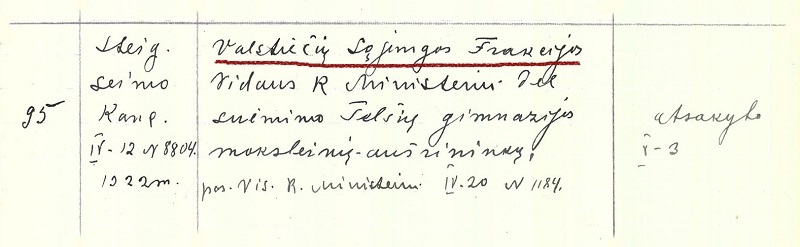 95
Steig.
seimo
Kanc.
IV-12 N 8804.
1922 m.
Valstiečių Sąjungos Frakcijos
Vidaus R Ministeriui dėl
suėmimo Telšių gimnazijos
moksleivių-aušrininkų,
par. Vis. R. Ministeriui IV-20 N 1184.
atsakyta
V-3